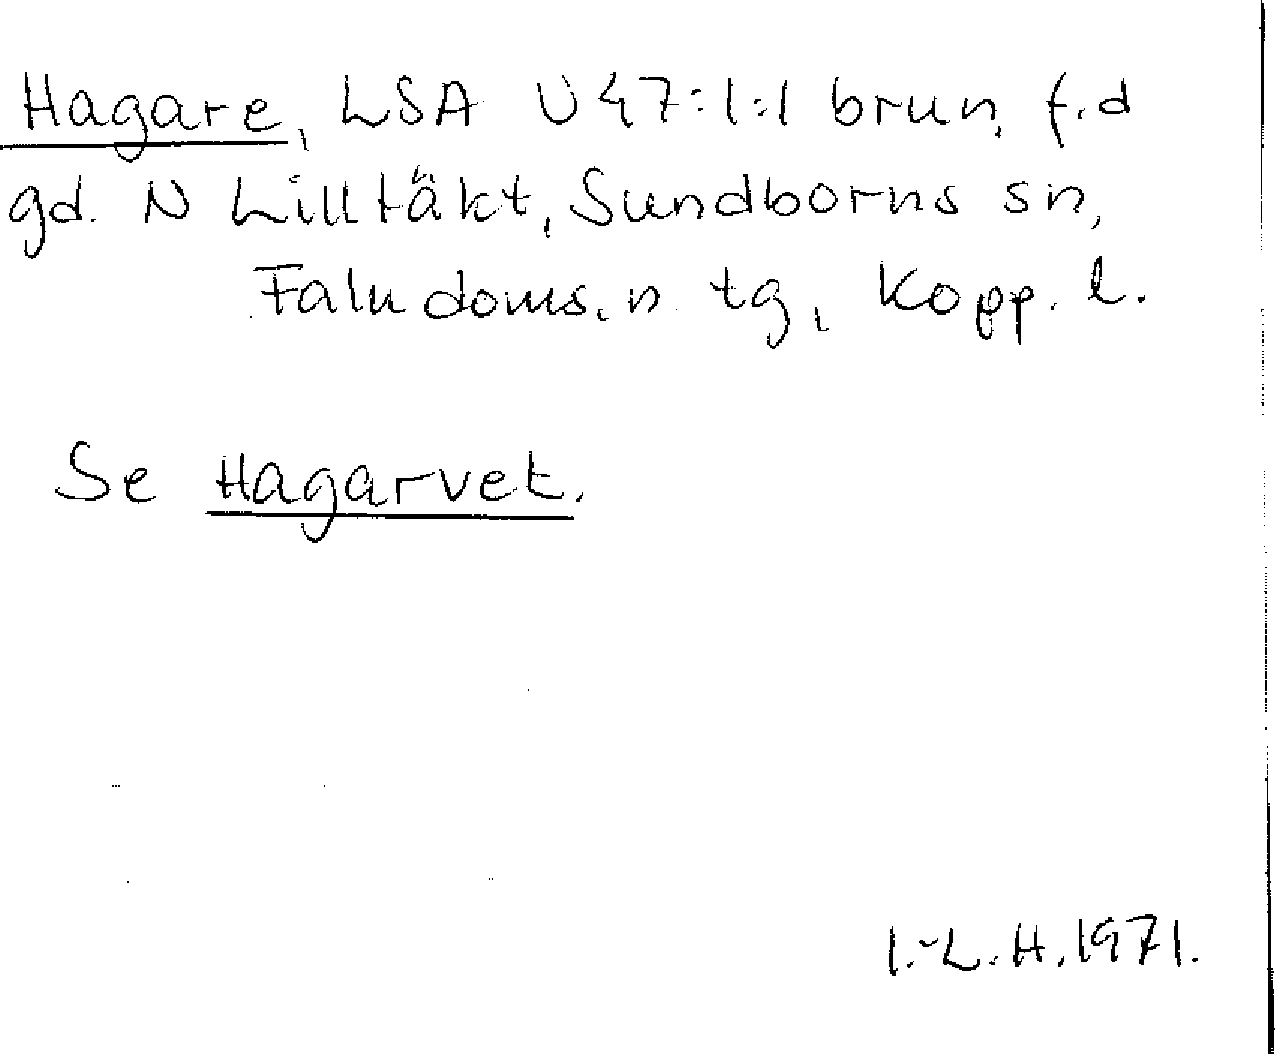 Hagare, LSA U47:1:1 brun, f.d
gd. N Lilltäkt, Sundborns sn,
Falu doms. n tg, Kopp. l.
Se Hagarvet.
I.-L.H. 1971.